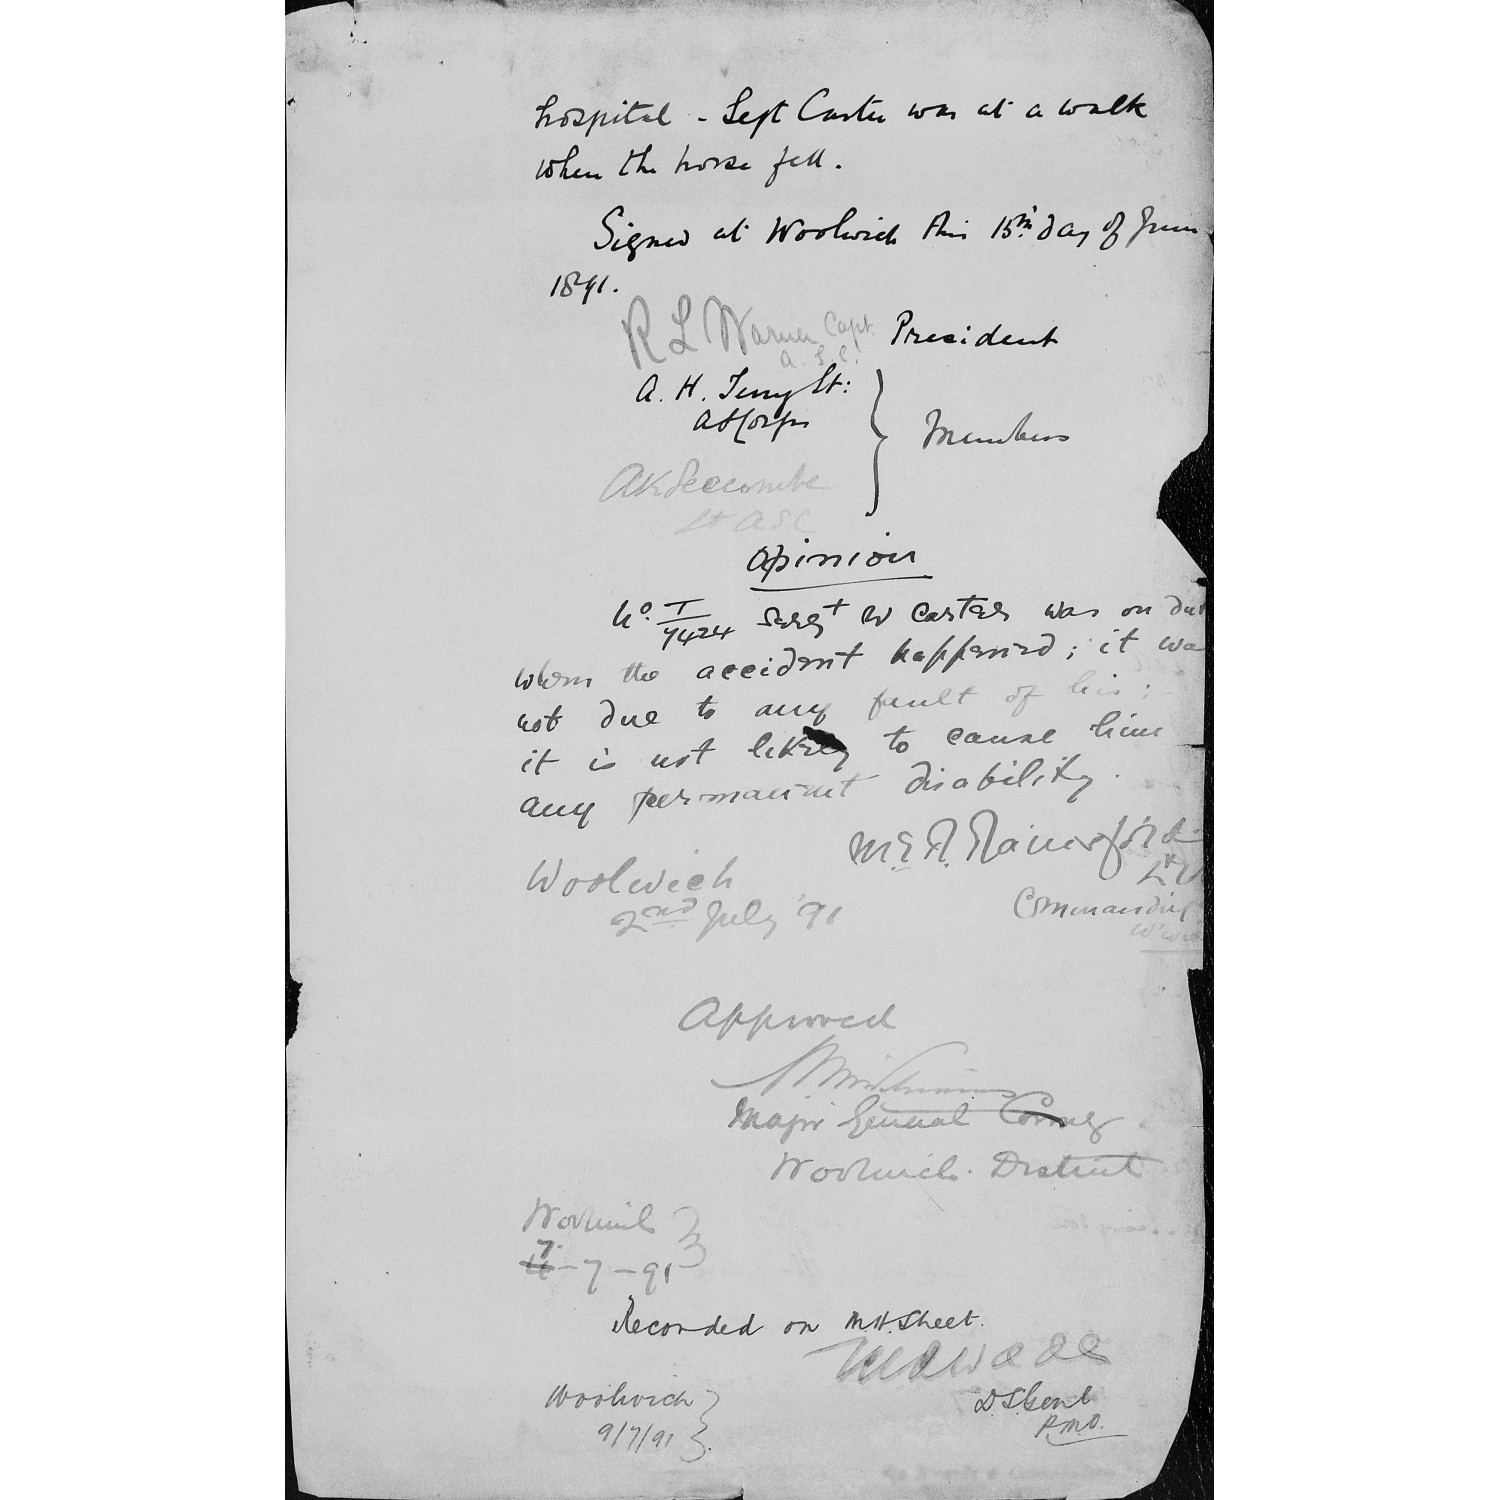 hospital - Sergt Carter was at a walk
when the horse fell.
Signed at Woolwich this 15th day of June
1891.
R L Warner Capt. President
A. S. C.
A. H. Terry Lt:
A S Corps
Members
A K Seccombe
Lt ASC
Opinion
No. T/7424 Sergt W Carter was on dut
when the accident happened; it wa
not due to any fault of his;
it is not likely to cause him
any permanent disability.
Rainsford
Woolwich
2nd July '91
Commanding
Approved
Major General Comg
Woolwich District
Woolwich
7-7-91
Recorded on M.H. Sheet.
Woolwich
9/7/91
D. S. Genl
P.M.O.